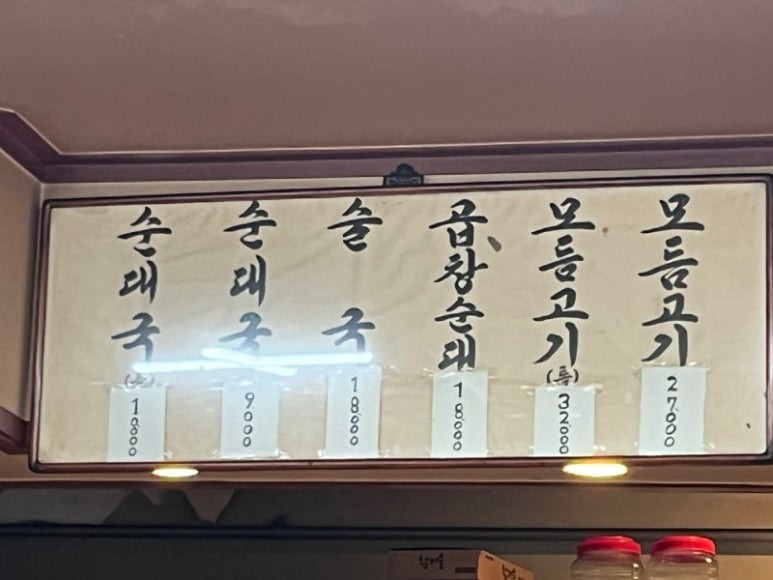 모듬고기 27000
모듬고기 (특) 32000
곱창순대 18000
술국 18000
순대국 9000
순대국 (특) 10000